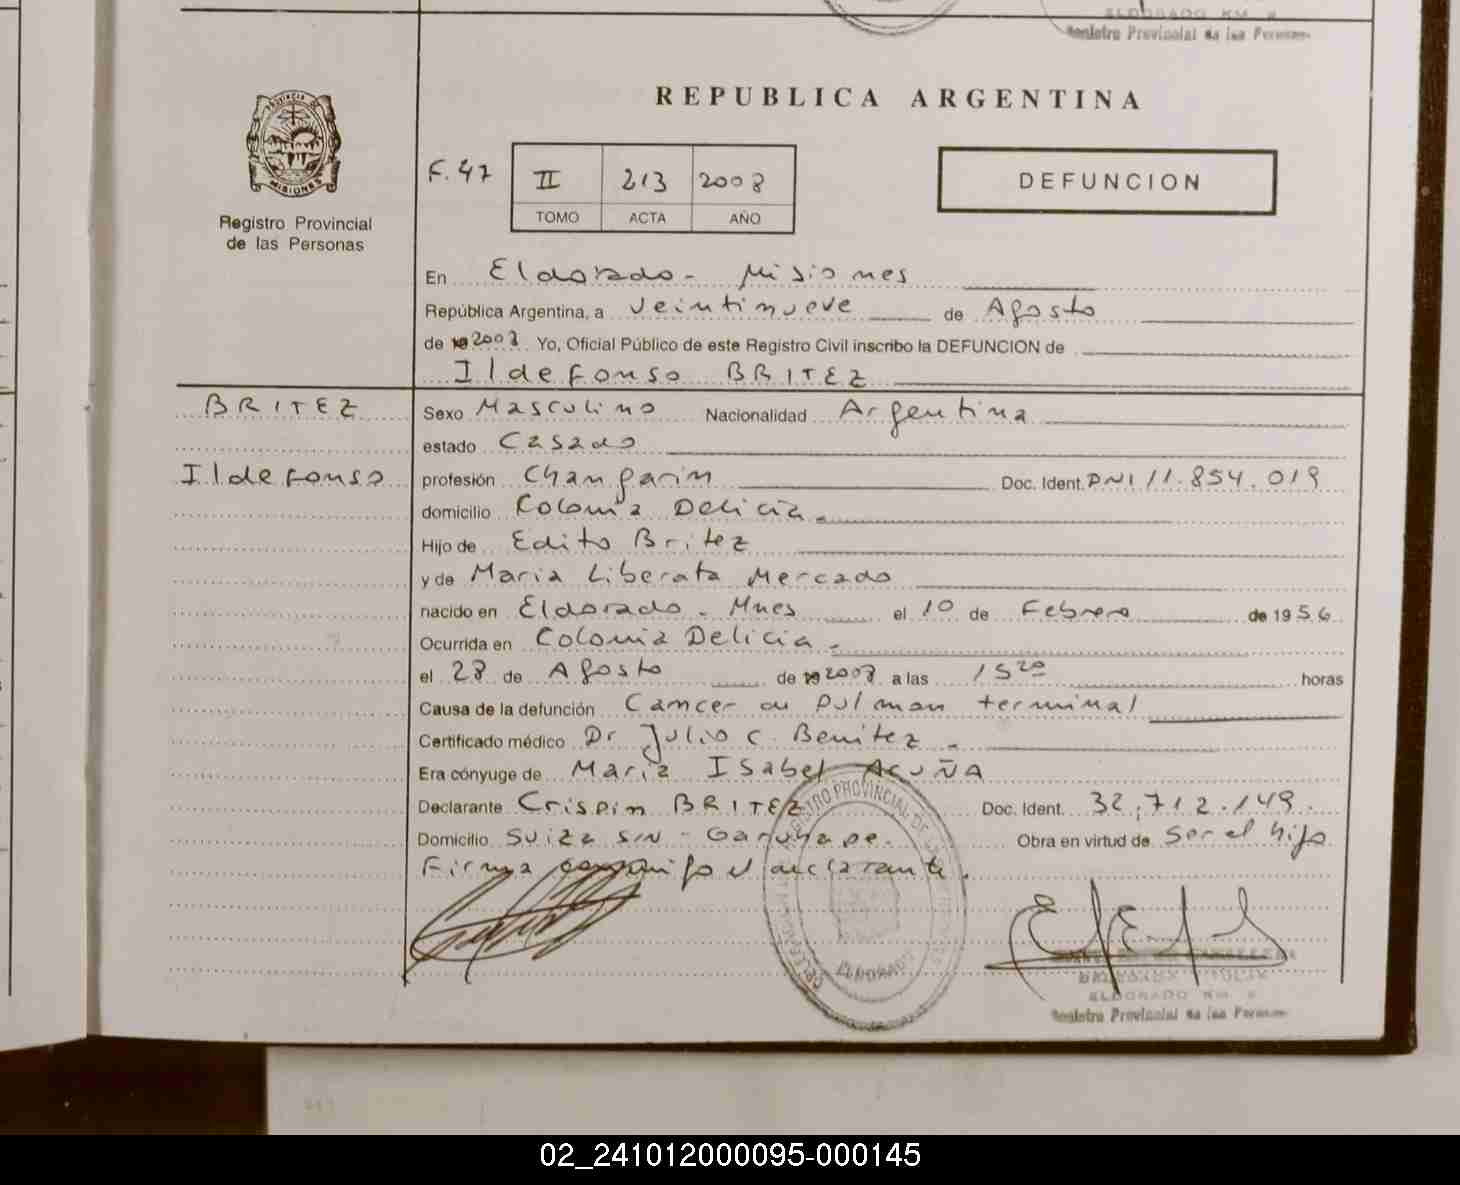 ELDORADO KM. 9
Registro Provincial de las Personas
PROVINCIA DE
MISIONES
Registro Provincial
de las Personas
REPUBLICA ARGENTINA
F. 47 II 213 2008
TOMO ACTA AÑO
DEFUNCION
En Eldorado - Misiones
República Argentina, a veintinueve de Agosto
de 19 2008 Yo, Oficial Público de este Registro Civil inscribo la DEFUNCION de
Ildefonso BRITEZ
BRITEZ
Ildefonso
Sexo Masculino Nacionalidad Argentina
estado Casado
profesión Changarin Doc. Ident. DNI 11.854.019
domicilio Colonia Delicia.
Hijo de Edito Britez
y de Maria Liberata Mercado
nacido en Eldorado - Mnes el 10 de Febrero de 1956
Ocurrida en Colonia Delicia -
el 28 de Agosto de 19 2008 a las 15 20 horas
Causa de la defunción Cancer de pulmon terminal
Certificado médico Dr Julio C. Benitez -
Era cónyuge de Maria Isabel ACUÑA
Declarante Crispin BRITEZ Doc. Ident. 32.712.149.
Domicilio Suiza S/N - Garuhape. Obra en virtud de Ser el hijo
Firma conmigo el declarante.
REGISTRO PROVINCIAL DE LAS PERSONAS
ELDORADO
ELDORADO KM. 9
Registro Provincial de las Personas
02_241012000095-000145